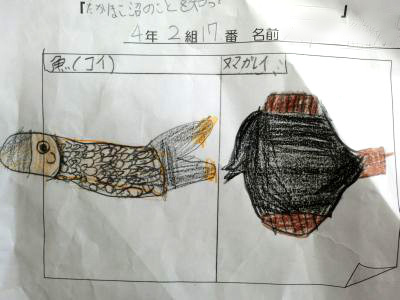 『たかほこ沼のことを知ろう 』
4年 2組 17番 名前
魚(コイ)
ヌマガレイ